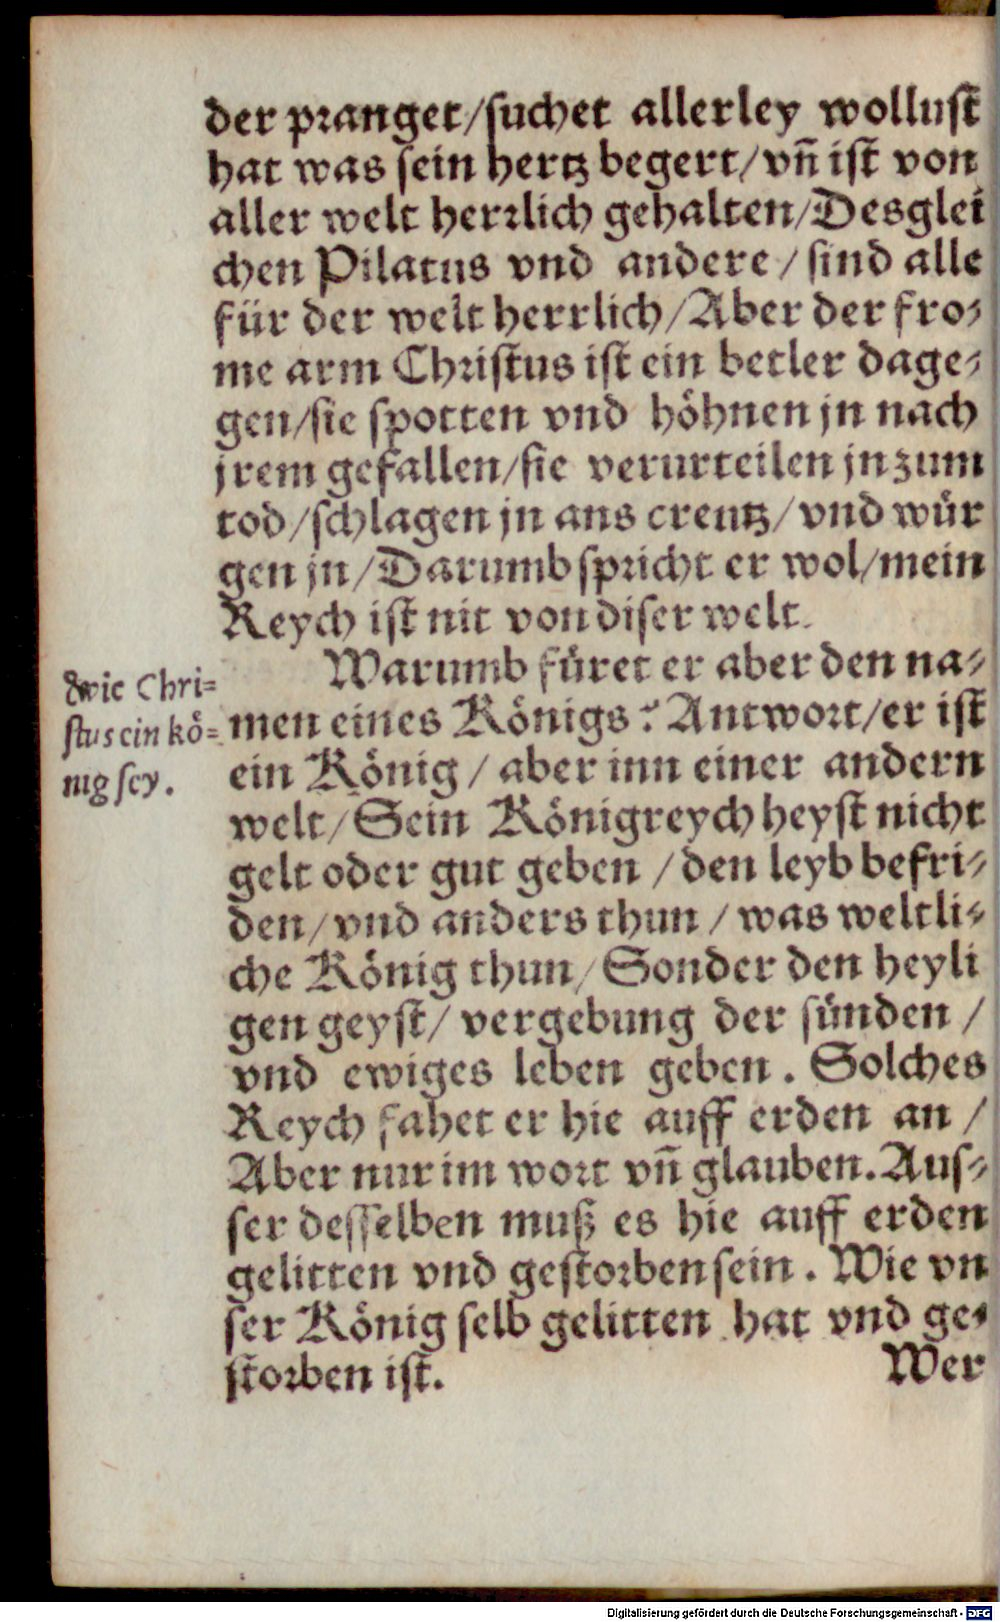 der pranget/suchet allerley wollust
hat was sein hertz begert/vñ ist von
aller welt herrlich gehalten/Desglei
chen Pilatus vnd andere/sind alle
für der welt herrlich/Aber der fro-
me arm Christus ist ein betler dage-
gen/sie spotten vnd höhnen jn nach
jrem gefallen/sie verurteilen jn zum
tod/schlagen jn ans creutz/vnd wür
gen jn/Darumb spricht er wol/mein
Reych ist nit von diser welt.
Warumb füret er aber den na-
wie Chri=
stus ein kö=
nig sey.
men eines Königs? Antwort/er ist
ein König/aber inn einer andern
welt/Sein Königreych heyst nicht
gelt oder gut geben/den leyb befri-
den/vnd anders thun/was weltli-
che König thun/Sonder den heyli
gen geyst/vergebung der sünden/
vnd ewiges leben geben. Solches
Reych fahet er hie auff erden an/
Aber nur im wort vñ glauben. Aus-
ser desselben muß es hie auff erden
gelitten vnd gestorben sein. Wie vn
ser König selb gelitten hat vnd ge-
storben ist.
Wer
Digitalisierung gefördert durch die Deutsche Forschungsgemeinschaft - DFG